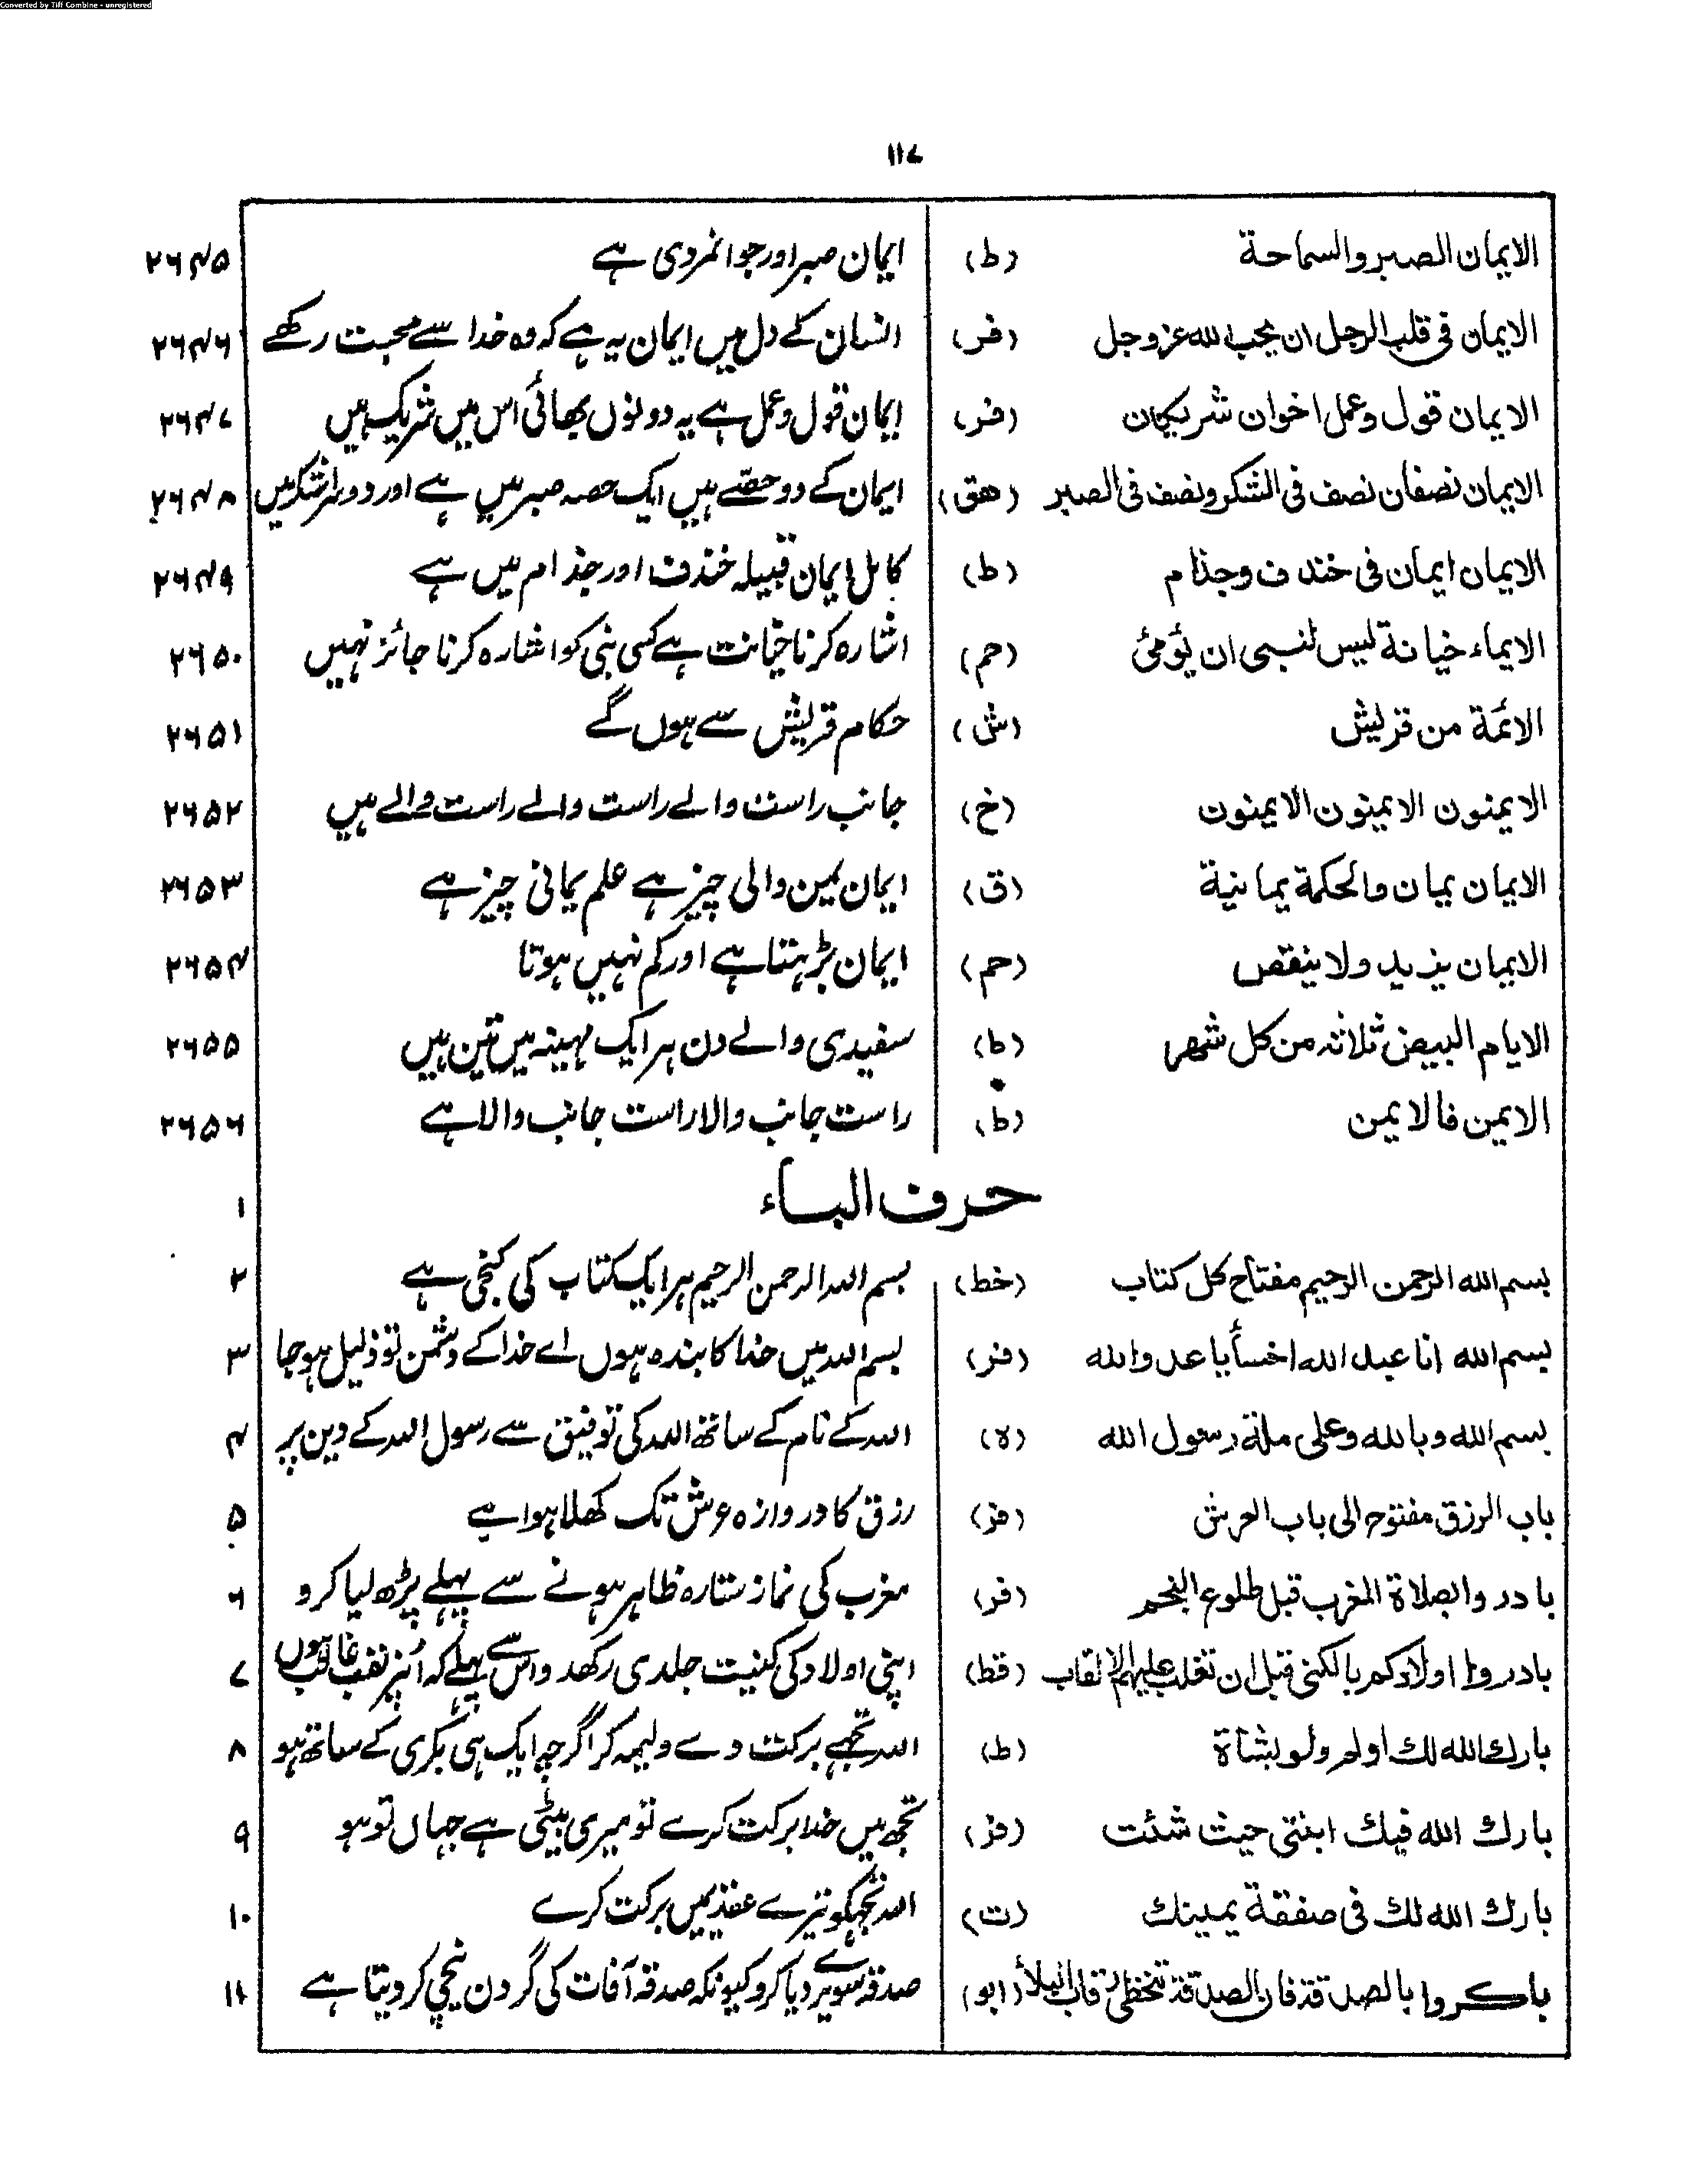 Converted by Tiff Combine - unregistered
۱۱۷
الایمان الصبر والسماحة (ط) ایمان صبر اور جوانمردی ہے ۲۶۴۵
الایمان فی قلب الرجل ان یحب الله عزوجل (فر) انسان کے دل میں ایمان یہ ہے کہ وہ خدا سے محبت رکھے ۲۶۴۶
الایمان قول وعمل اخوان شریکان (فر) ایمان قول و عمل ہے یہ دونوں بھائی اس میں شریک ہیں ۲۶۴۷
الایمان نصفان نصف فی الشکر ونصف فی الصبر (هق) ایمان کے دو حصے ہیں ایک حصہ صبر میں ہے اور دوسرا شکر میں ۲۶۴۸
الایمان ایمان فی خندف وجذام (ط) کامل ایمان قبیلہ خندف اور جذام میں ہے ۲۶۴۹
الایماء خیانة لیس لنبی ان یؤمئ (حم) اشارہ کرنا خیانت ہے کسی نبی کو اشارہ کرنا جائز نہیں ۲۶۵۰
الائمة من قریش (ش) حکام قریش سے ہوں گے ۲۶۵۱
الایمنون الایمنون الایمنون (خ) جانب راست والے راست والے راست والے ہیں ۲۶۵۲
الایمان یمان والحکمة یمانیة (ق) ایمان یمین والی چیز ہے علم یمانی چیز ہے ۲۶۵۳
الایمان یزید ولا ینقص (حم) ایمان بڑہتا ہے اور کم نہیں ہوتا ۲۶۵۴
الایام البیض ثلاثه من کل شهر (ط) سفیدی والے دن ہر ایک مہینہ میں تین ہیں ۲۶۵۵
الایمن فالایمن (ط) راست جانب والا راست جانب والا ہے ۲۶۵۶
حرف الباء ۱
بسم الله الرحمن الرحیم مفتاح کل کتاب (خط) بسم اللہ الرحمن الرحیم ہر ایک کتاب کی کنجی ہے ۲
بسم الله انا عبد الله اخسأ یا عدو الله (فر) بسم اللہ میں خدا کا بندہ ہوں اے خدا کے دشمن تو ذلیل ہو جا ۳
بسم الله وبالله وعلی ملة رسول الله (ہ) اللہ کے نام کے ساتھ اللہ کی توفیق سے رسول اللہ کے دین پر ۴
باب الرزق مفتوح الی باب العرش (فر) رزق کا دروازہ عرش تک کھلا ہوا ہے ۵
بادروا بصلاة المغرب قبل طلوع النجم (فر) مغرب کی نماز ستارہ ظاہر ہونے سے پہلے پڑھ لیا کرو ۶
بادروا اولادکم بالکنی قبل ان تغلب علیهم الالقاب (قط) اپنی اولاد کی کنیت جلدی رکھدو اس سے پہلے کہ اُنپر لقب غالب ہوں ۷
بارك الله لك اولم ولو بشاة (ط) اللہ تجھے برکت دے ولیمہ کر اگرچہ ایک ہی بکری کے ساتھ ہو ۸
بارك الله فیك ابنتی حیث شئت (فر) تجھ میں خدا برکت کرے تو میری بیٹی ہے جہاں تو ہو ۹
بارك الله لك فی صفقة یمینك (ت) اللہ تجہکو تیرے عقد یمین میں برکت کرے ۱۰
باکروا بالصدقة فان الصدقة تتخطی رقاب البلاء (ابو) صدقہ سویرے دیا کرو کیونکہ صدقہ آفات کی گردن نیچی کر دیتا ہے ۱۱